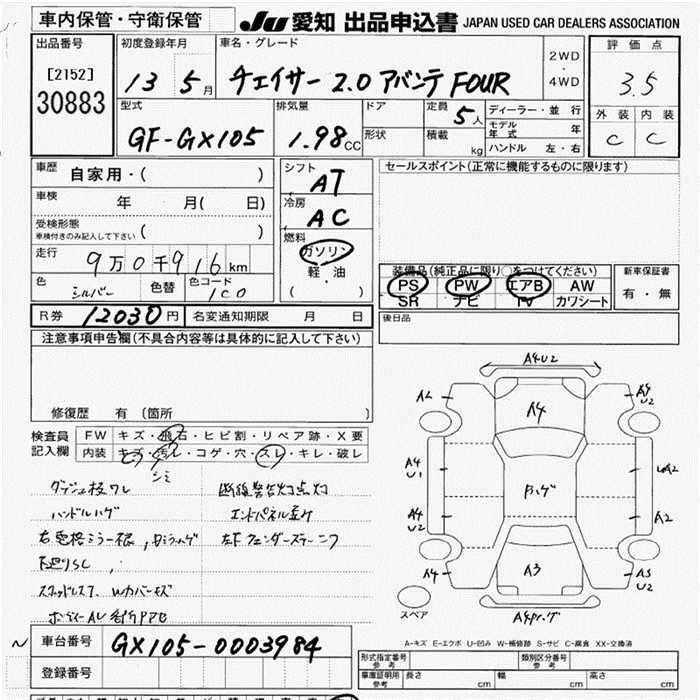 車内保管・守衛保管
JU 愛知 出品申込書 JAPAN USED CAR DEALERS ASSOCIATION
出品番号 [2152] 30883
初度登録年月 13 5月
車名・グレード チェイサー 2.0 アバンテ FOUR
2WD・4WD
評価点 3.5
外装 内装
C C
型式 GF-GX105
排気量 1.98 CC
ドア
形状
定員 5人
積載 kg
ディーラー・並行
モデル年式 年
ハンドル 左・右
車歴 自家用・( )
車検 年 月( 日)
受検形態 車検付きのみ記入して下さい ( )
走行 9万0千916km
色 シルバー 色替 色コード 1C0
シフト AT
冷房 AC
燃料 ガソリン
軽・油
( )
セールスポイント(正常に機能するものに限ります)
装備品(純正品に限り○をつけてください)
PS PW エアB AW
SR ナビ TV カワシート
新車保証書
有・無
R券 12030円 名変通知期限 月 日
後日品
注意事項申告欄(不具合内容等は具体的に記入して下さい)
修復歴 有 (箇所 )
検査員記入欄
FW キズ・飛石・ヒビ割・リペア跡・X要
内装 キズ・汚レ・コゲ・穴・スレ・キレ・破レ
シミ
ダッシュ板ワレ
ハンドルハゲ
下廻りSC
A4U2
A2
A4
A4 U1
A4 U2
A2
A3
A4
スペア
A-キズ E-エクボ U-凹み W-補修跡 S-サビ C-腐食 XX-交換済
車台番号 GX105-0003984
登録番号
形式指定番号 参考
類別区分番号 参考
車庫証明用 参考 長さ cm 幅 cm 高さ cm